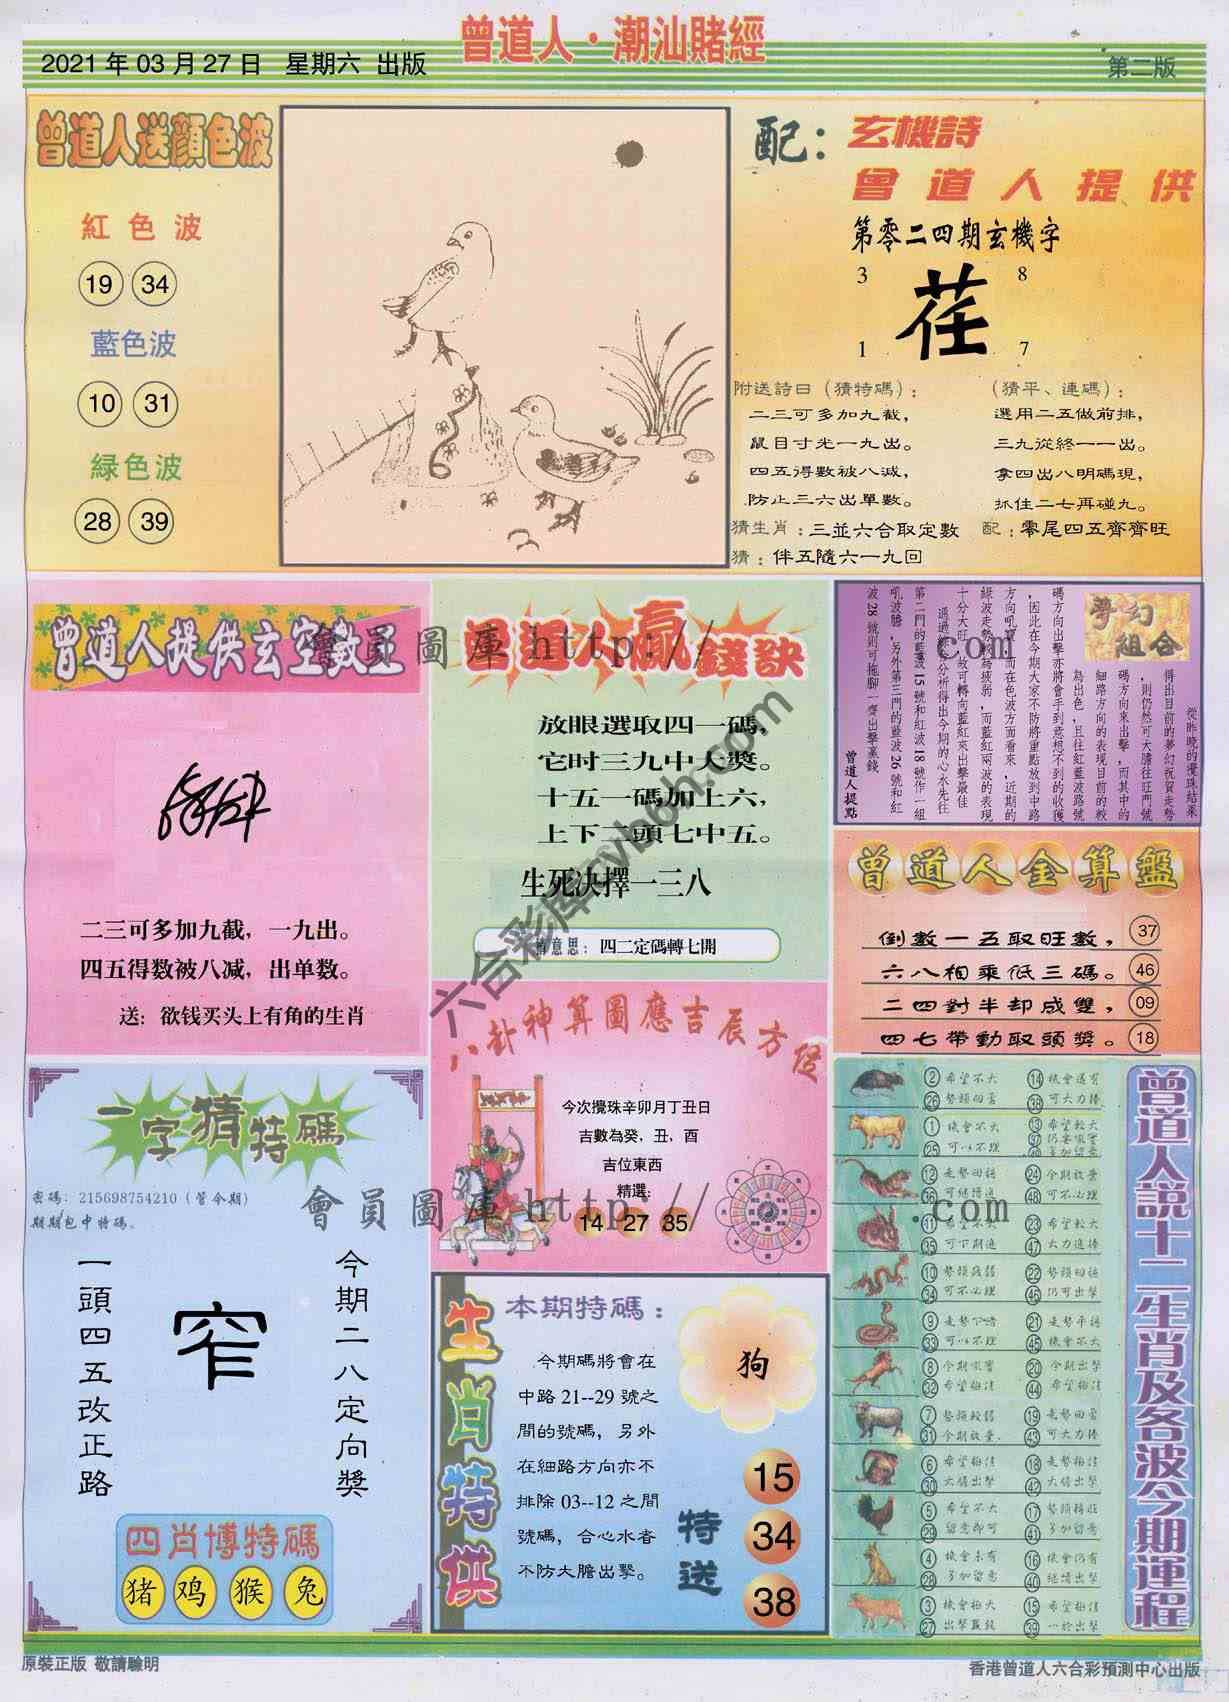 曾道人·潮汕賭經
2021 年 03 月 27 日 星期六 出版
第二版
曾道人送顏色波
紅 色 波
19 34
藍色波
10 31
緑色波
28 39
配：玄機詩
曾 道 人 提 供
第零二四期玄機字
3 8
荏
1 7
附送詩曰（猜特碼）：
二三可多加九截，
鼠目寸光一九出。
四五得數被八減，
防止三六出單數。
（猜平、連碼）：
選用二五做前排，
三九從終一一出。
拿四出八明碼現，
抓住二七再碰九。
猜生肖：三並六合取定數 配：零尾四五齊齊旺
猜：伴五隨六一九回
曾道人提供玄空數
二三可多加九截，一九出。
四五得数被八减，出单数。
送：欲钱买头上有角的生肖
曾道人贏錢訣
放眼選取四一碼，
它时三九中大獎。
十五一碼加上六，
上下二頭七中五。
生死决擇一三八
四二定碼轉七開
夢幻
組合
從昨晚的攪珠結果
得出目前的夢幻祝賀走勢
，則仍然可大膽往旺門號
碼方向來出擊，而其中的
細路方向的表現目前的較
為出色，且往紅藍波路號
碼方向出擊亦將會手到意想不到的收獲
，因此在今期大家不防將重點放到中路
方向吼寶，而在色波方面看來，近期的
綠波走勢較為疲弱，而藍紅兩波的表現
十分大旺，故可轉向藍紅來出擊最佳
第二門的藍波 15 號和紅波 18 號作一組
吼波膽，另外第三門的藍波 26 號和紅
波 28 號則可拖腳一齊出擊贏錢
曾道人提點
曾道人金算盤
倒數一五取旺數， 37
六八相乘低三碼。 46
二四對半却成雙， 09
四七帶動取頭獎。 18
八卦神算圖應吉辰方位
今次攪珠辛卯月丁丑日
吉數為癸，丑，酉
吉位東西
精選:
14 27 35
一字猜特碼
密碼：215698754210（管今期）
期期包中特碼。
今期二八定向獎
窄
一頭四五改正路
四肖博特碼
猪 鸡 猴 兔
生肖特供
本期特碼：
今期碼將會在
中路 21--29 號之
間的號碼，另外
在細路方向亦不
排除 03--12 之間
號碼，合心水者
不防大膽出擊。
狗
特送
15
34
38
曾道人説十二生肖及各波今期運程
② 希望不大 ⑭ 機會還有
㉖ 勢頭回著 ㊳ 可大力捧
① 機會不大 ⑬ 希望較大
㉕ 可以不理
⑫ 走勢回穩 ㉔ 今期放棄
㊱ ㊽ 可不必理
⑪ ㉓ 希望較大
㉟ 可下期進 ㊼ 大力進捧
⑩ 勢頭疲弱 ㉒ 勢頭回穩
㉞ 可不必理 ㊻ 仍可出擊
⑨ ㉑ 走勢平穩
㉝ 可以不理 ㊺ 機會不大
⑧ 今期吼寶 ⑳ 今期出擊
㉜ 希望極佳 ㊹ 希望極佳
⑦ 勢頭較弱 ⑲ 走勢回著
㉛ 今期放棄 ㊸ 可大力捧
⑥ 希望極佳 ⑱ 走勢極佳
㉚ 大膽出擊 ㊷ 大膽出擊
⑤ 希望不大 ⑰ 勢頭轉旺
㉙ 留意即可 ㊶ 多加留意
④ 機會未有 ⑯ 機會仍有
㉘ 多加留意 ㊵ 繼續出擊
③ 機會極大 ⑮ 希望極佳
㉗ 出擊贏錢 ㊴ 一於出擊
會員圖庫 http:// .com
會員圖庫 http:// .com
六合彩库cvb6h.com
原裝正版 敬請驗明
香港曾道人六合彩預測中心出版